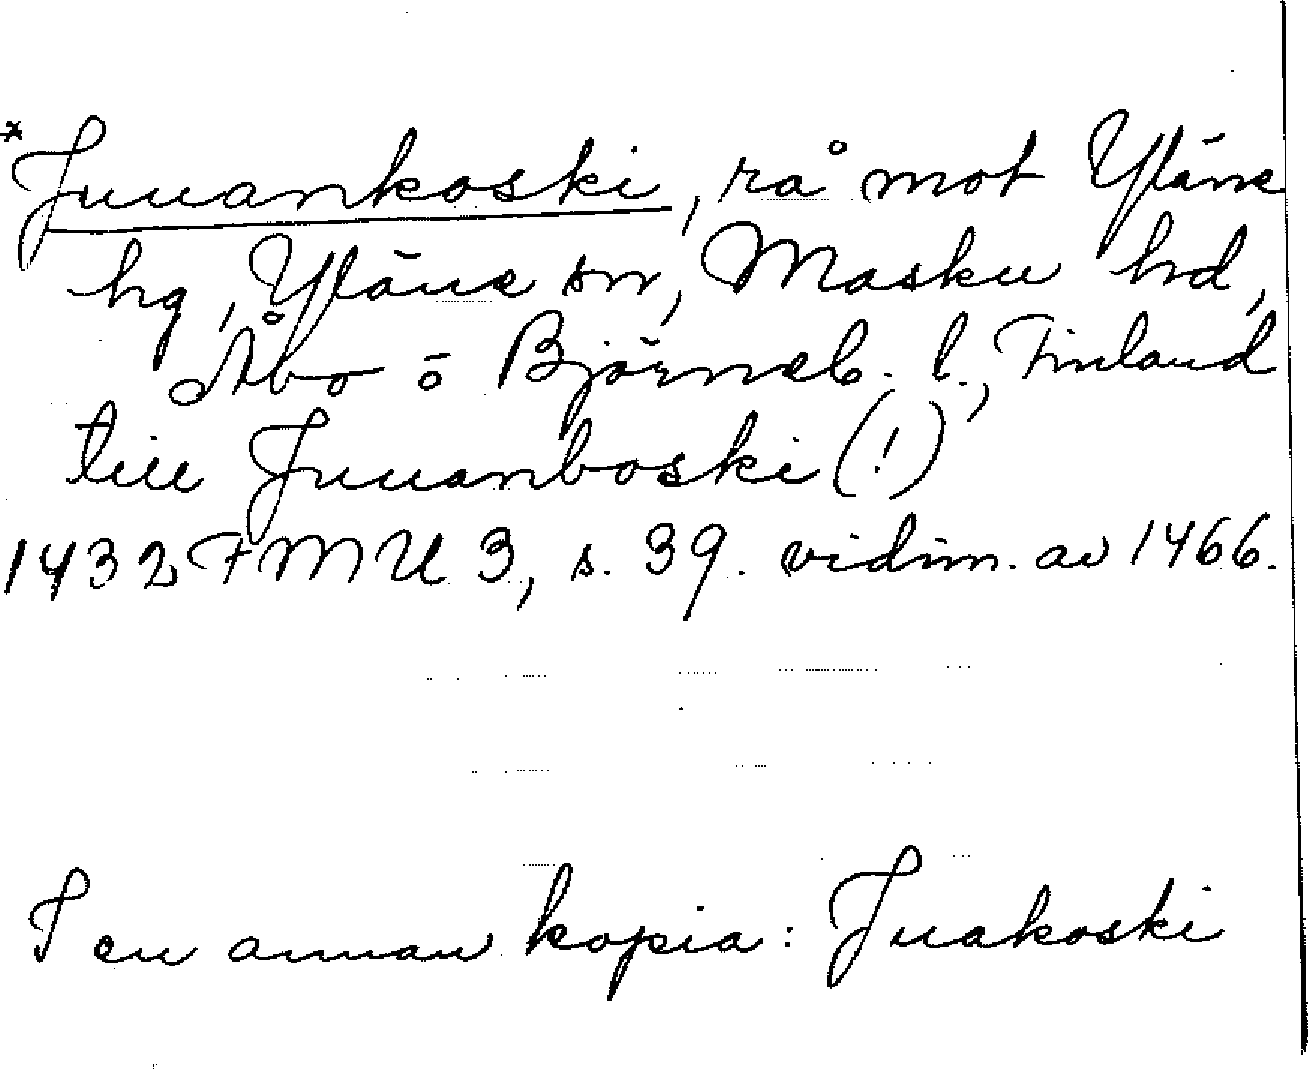 *Juuankoski, rå mot Yläne
hg, Yläne sn, Masku hd,
Åbo o Björneb. l., Finland
till Juuanboski (!)
1432 FMU 3, s. 39. vidim. av 1466.
I en annan kopia: Juakoski